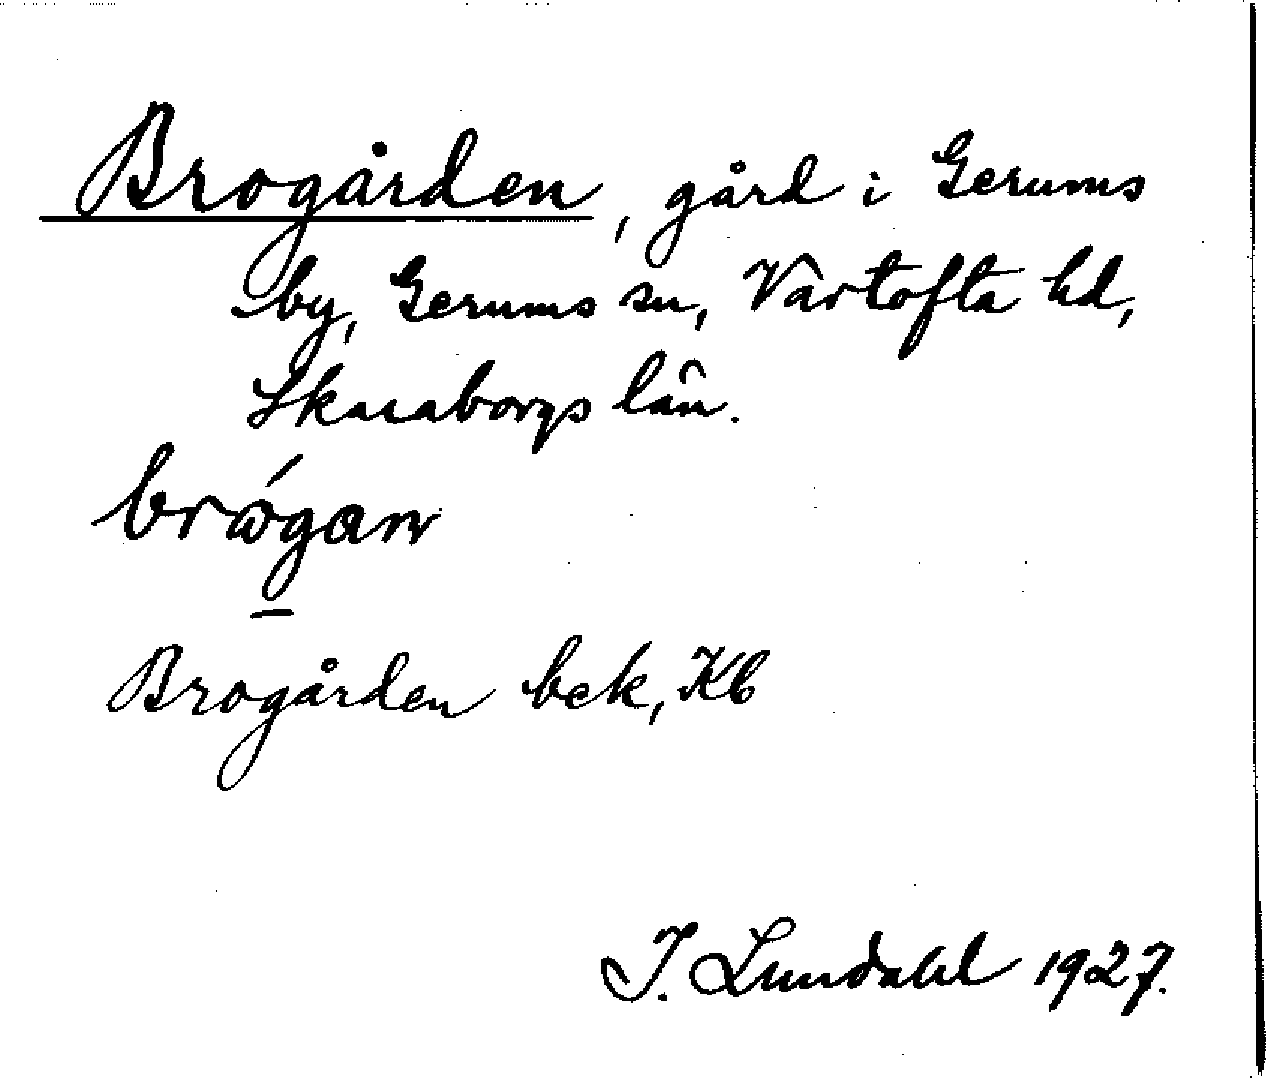 Brogården, gård i Gerums
by, Gerums sn, Vartofta hd,
Skaraborgs län.
brógan
Brogården bek, Kb
I. Lundahl 1927.